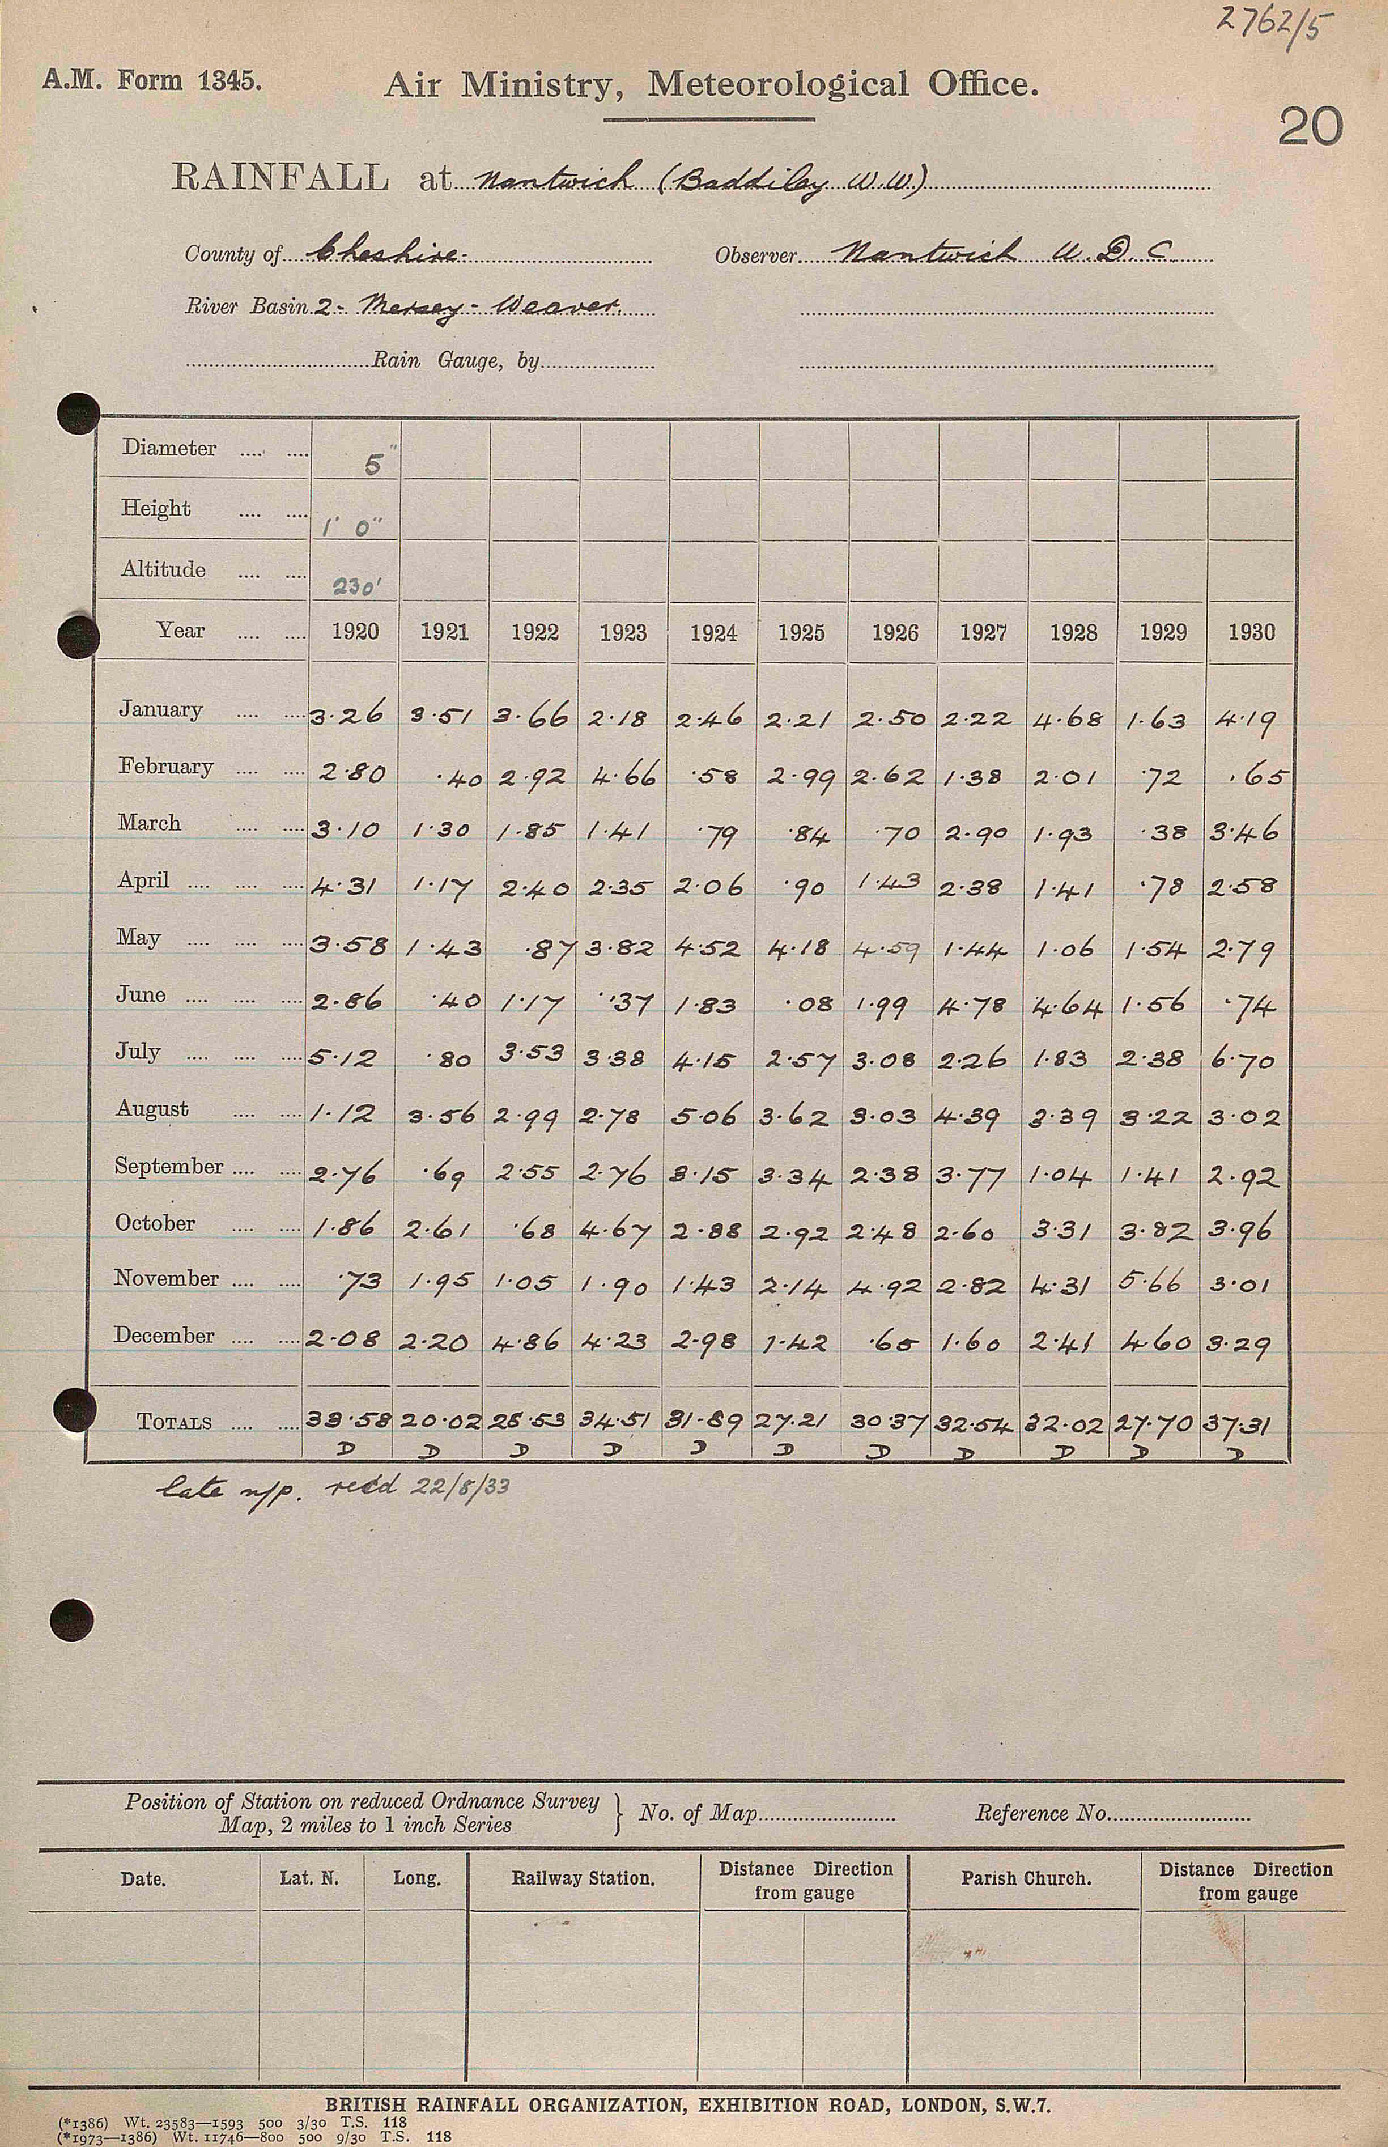 2762/5
A.M. Form 1345. Air Ministry, Meteorological Office.
20
RAINFALL at Nantwich (Baddiley W.W.)
County of Cheshire. Observer Nantwich U.D.C
River Basin 2 - Mersey - Weaver.
Rain Gauge, by
Diameter 5"
Height 1' 0"
Altitude 230'
Year 1920 1921 1922 1923 1924 1925 1926 1927 1928 1929 1930
January 3.26 3.51 3.66 2.18 2.46 2.21 2.50 2.22 4.68 1.63 4.19
February 2.80 .40 2.92 4.66 .58 2.99 2.62 1.38 2.01 .72 .65
March 3.10 1.30 1.85 1.41 .79 .84 .70 2.90 1.93 .38 3.46
April 4.31 1.17 2.40 2.35 2.06 .90 1.43 2.38 1.41 .78 2.58
May 3.58 1.43 .87 3.82 4.52 4.18 4.59 1.44 1.06 1.54 2.79
June 2.86 .40 1.17 .37 1.83 .08 1.99 4.78 4.64 1.56 .74
July 5.12 .80 3.53 3.38 4.15 2.57 3.08 2.26 1.83 2.38 6.70
August 1.12 3.56 2.99 2.78 5.06 3.62 3.03 4.39 3.39 3.22 3.02
September 2.76 .69 2.55 2.76 3.15 3.34 2.38 3.77 1.04 1.41 2.92
October 1.86 2.61 .68 4.67 2.88 2.92 2.48 2.60 3.31 3.82 3.96
November .73 1.95 1.05 1.90 1.43 2.14 4.92 2.82 4.31 5.66 3.01
December 2.08 2.20 4.86 4.23 2.98 1.42 .65 1.60 2.41 4.60 3.29
TOTALS 33.58 20.02 28.53 34.51 31.89 27.21 30.37 32.54 32.02 27.70 37.31
D D D D D D D D D D D
late n/p. recd 22/8/33
Position of Station on reduced Ordnance Survey
Map, 2 miles to 1 inch Series } No. of Map Reference No.
Date. Lat. N. Long. Railway Station. Distance Direction from gauge Parish Church. Distance Direction from gauge
BRITISH RAINFALL ORGANIZATION, EXHIBITION ROAD, LONDON, S.W.7.
(*1386) Wt. 23583—1593 500 3/30 T.S. 118
(*1973—1386) Wt. 11746—800 500 9/30 T.S. 118